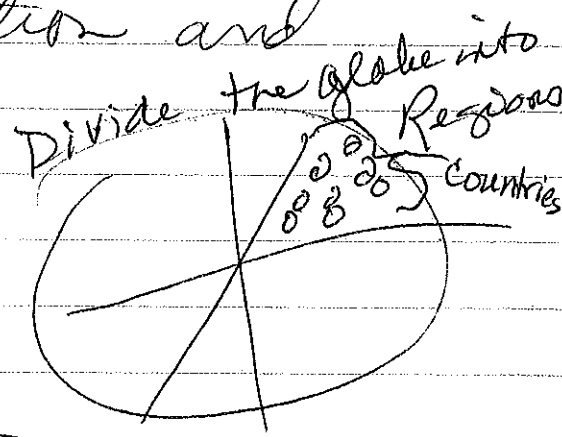 and
Divide the globe into
Regions
Countries